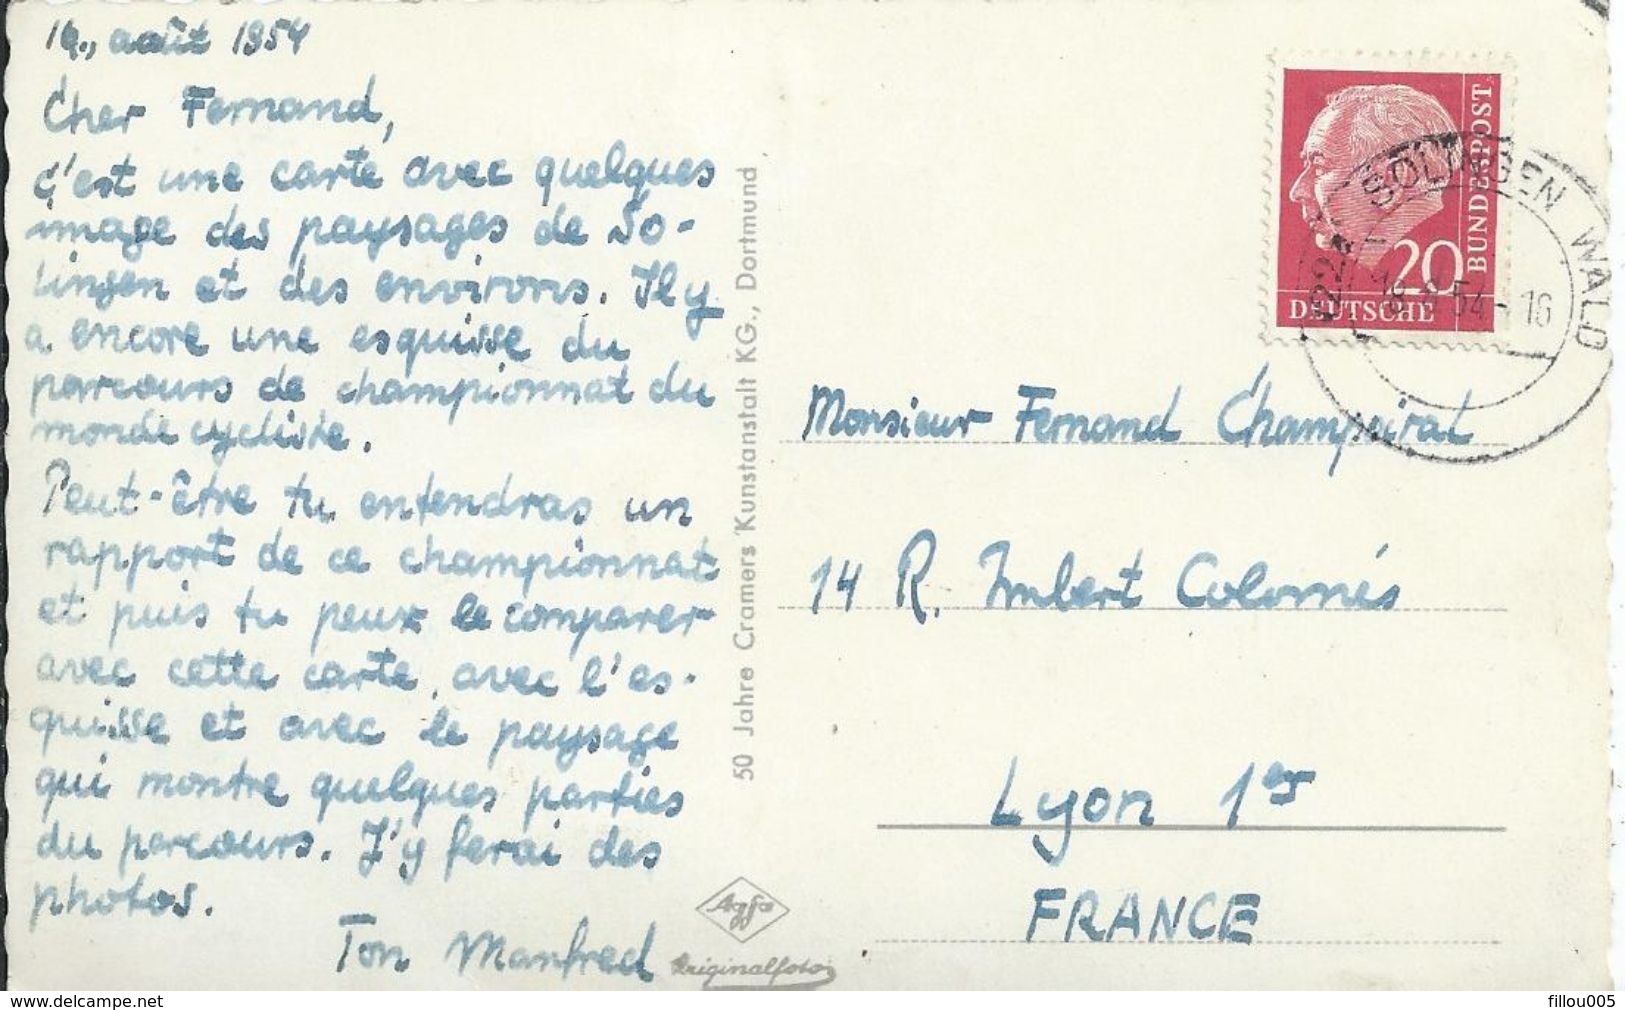 août 1954
Cher Fernand,
c'est une carte avec quelques
image des paysages de So-
lingen et des environs. Il y
a encore une esquisse du
parcours de championnat du
monde cycliste.
Peut-être tu entendras un
rapport de ce championnat
et puis tu peux le comparer
avec cette carte, avec l'es-
quisse et avec le paysage
qui montre quelques parties
du parcours. J'y ferai des
photos.
Ton Manfred
50 Jahre Cramers Kunstanstalt KG., Dortmund
Agfa
Originalfoto
DEUTSCHE
BUNDESPOST
20
SOLINGEN WALD
54-16
Monsieur Fernand Champairal
14 R. Imbert Colomés
Lyon 1er
FRANCE
delcampe.net
fillou005